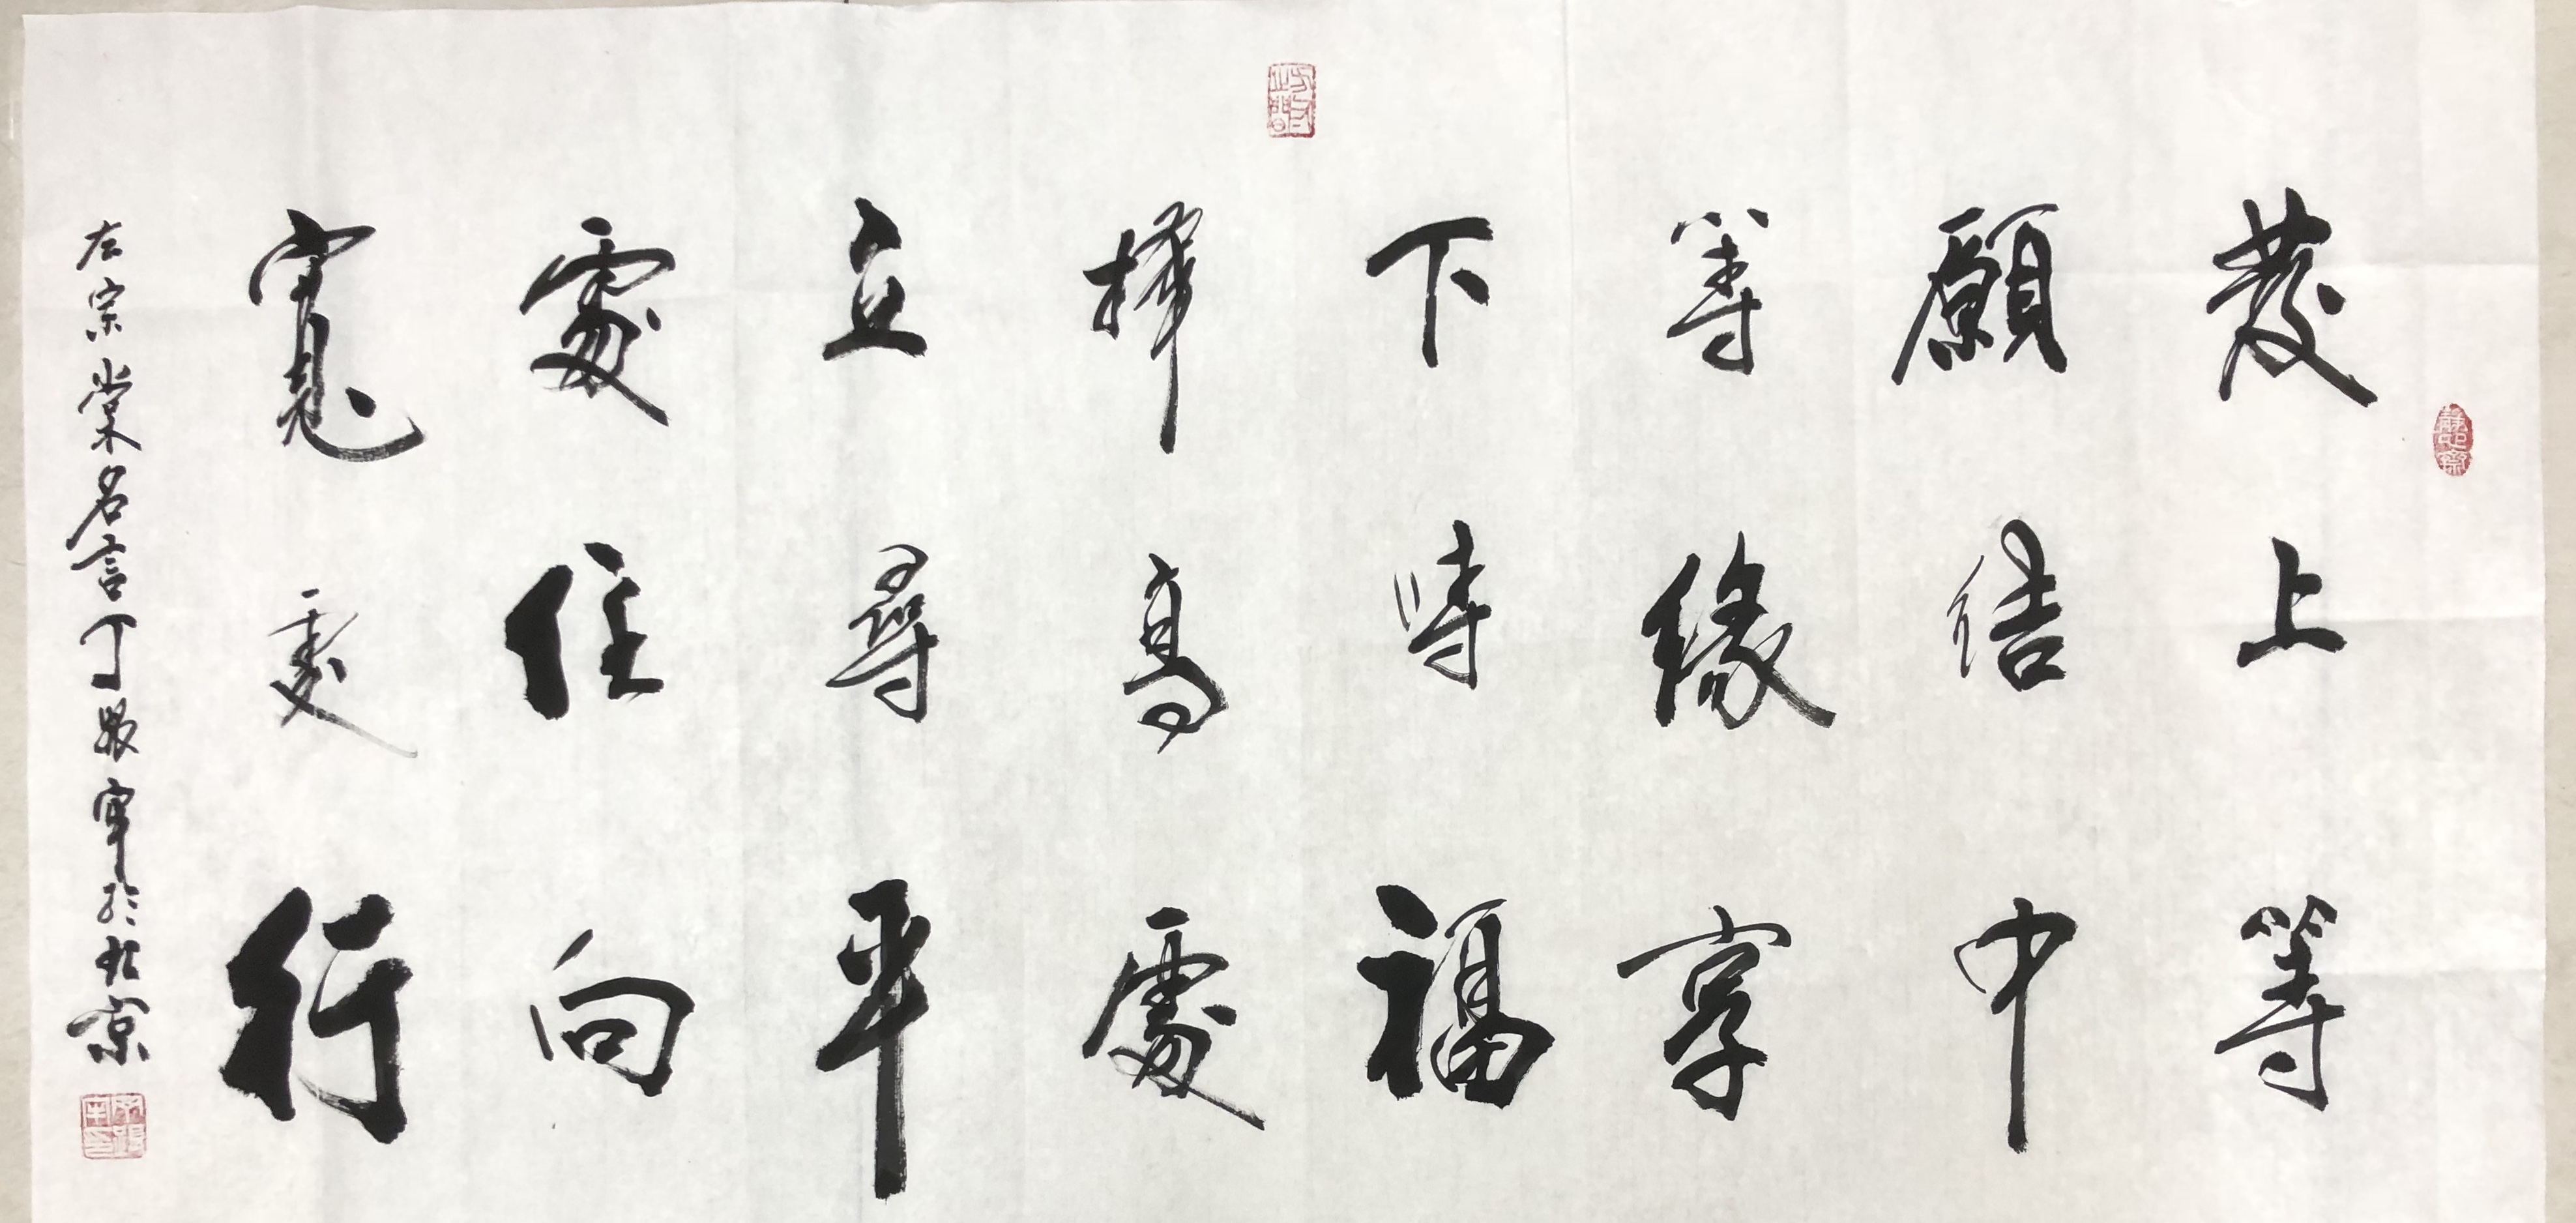 發上等
願結中
等緣享
下時福
擇高處
立尋平
處住向
寬處行
左宗棠名言丁軍於北京